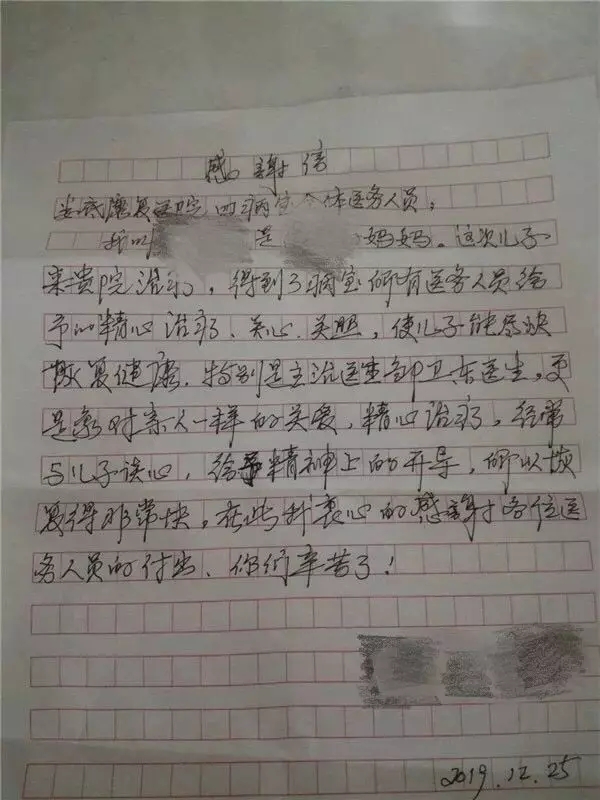 感謝信
娄底康复医院四病室全体医务人员：
我叫 是 妈妈。这次儿子
来贵院治疗，得到了病室所有医务人员给
予的精心治疗、关心、关照，使儿子能尽快
恢复健康。特别是主治医生邹卫东医生，更
是象对亲人一样的关爱，精心治疗，经常
与儿子谈心，给予精神上的开导，所以恢
复得非常快，在此我衷心的感謝各位医
务人员的付出、你们辛苦了！
2019.12.25